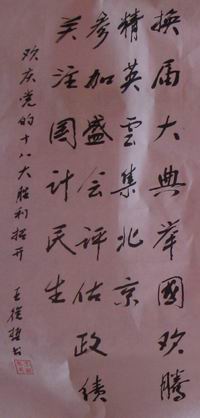 换届大典举國欢腾
精英雲集北京
参加盛会评估政绩
关注国计民生
欢庆党的十八大胜利招开
王